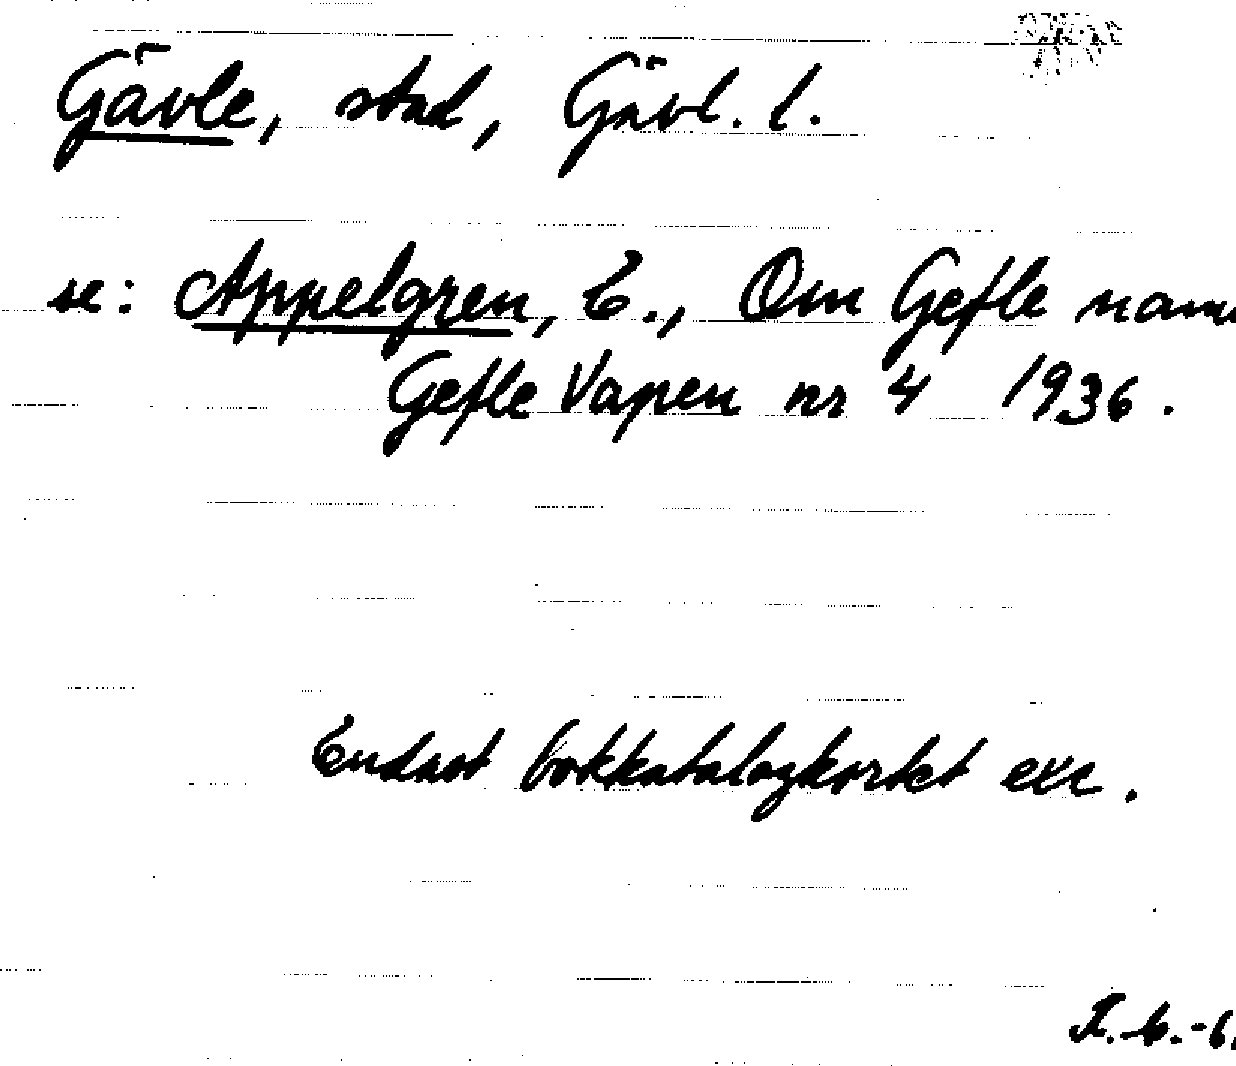 Gävle, stad, Gävl. l.
se: Appelgren, E., Om Gefle namn
Gefle Vapen nr 4 1936.
Endast bokkatalogkortet exc.